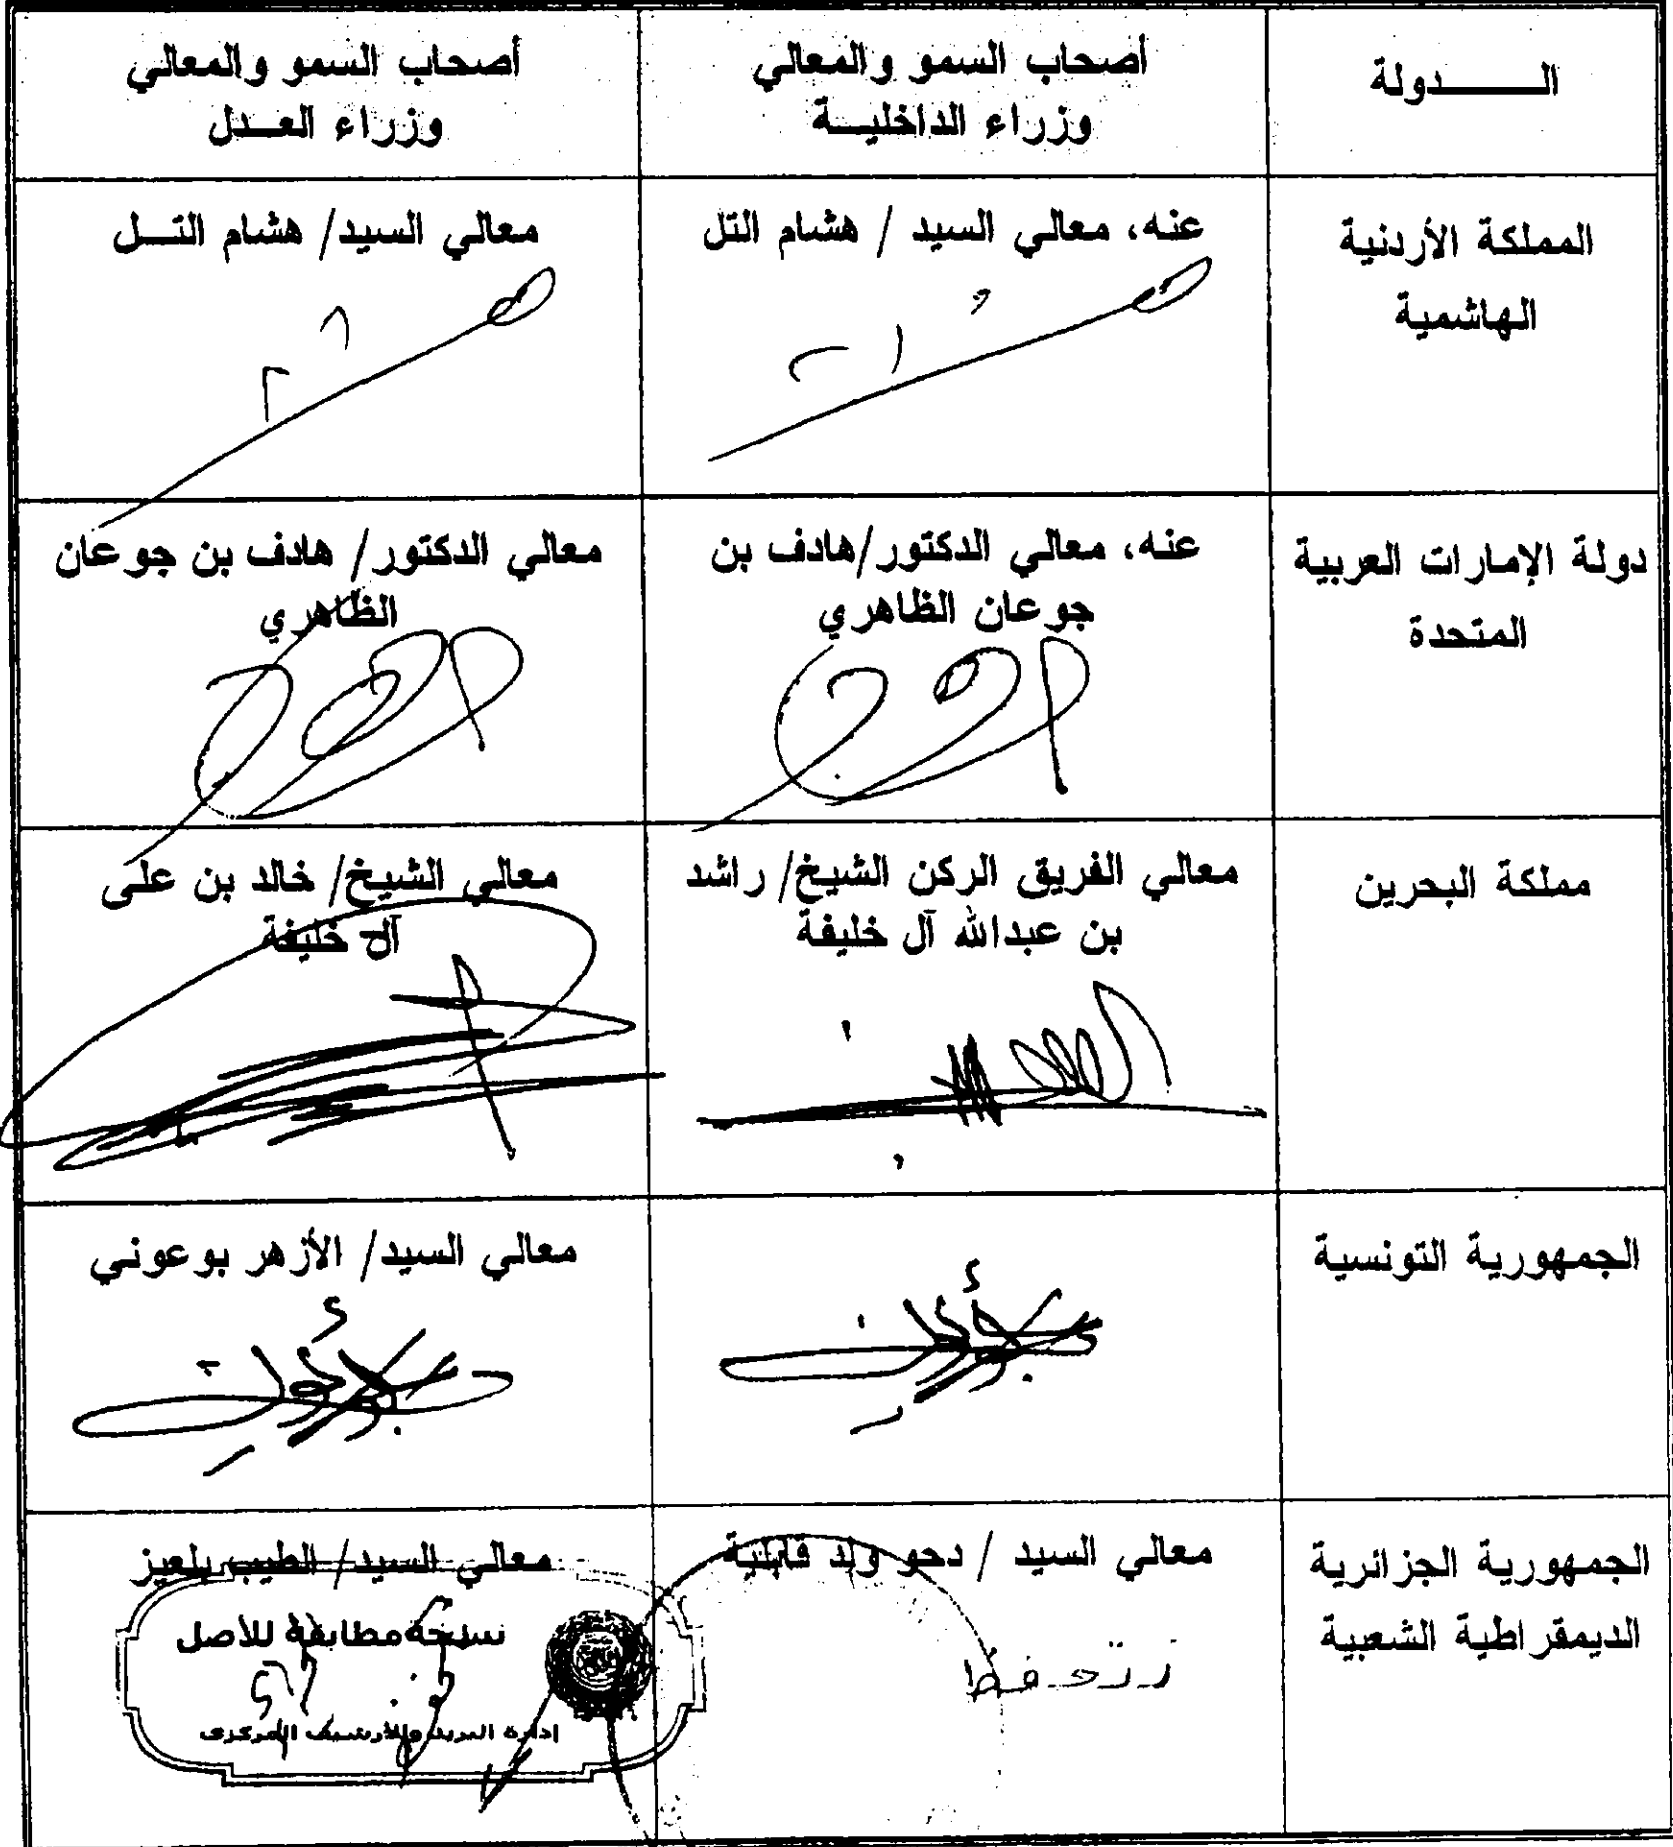 الـــــــدولة
أصحاب السمو والمعالي
وزراء الداخليـــة
أصحاب السمو والمعالي
وزراء العـــدل
المملكة الأردنية
الهاشمية
عنه، معالي السيد / هشام التل
معالي السيد/ هشام التـــل
دولة الإمارات العربية
المتحدة
عنه، معالي الدكتور/هادف بن
جوعان الظاهري
معالي الدكتور/ هادف بن جوعان
الظاهري
مملكة البحرين
معالي الفريق الركن الشيخ/ راشد
بن عبدالله آل خليفة
معالي الشيخ/ خالد بن على
آل خليفة
الجمهورية التونسية
معالي السيد/ الأزهر بوعوني
الجمهورية الجزائرية
الديمقراطية الشعبية
معالي السيد / دحو ولد قابلية
معالي السيد/ الطيب بلعيز
نسخة مطابقة للأصل
إدارة البريد والأرشيف المركزى